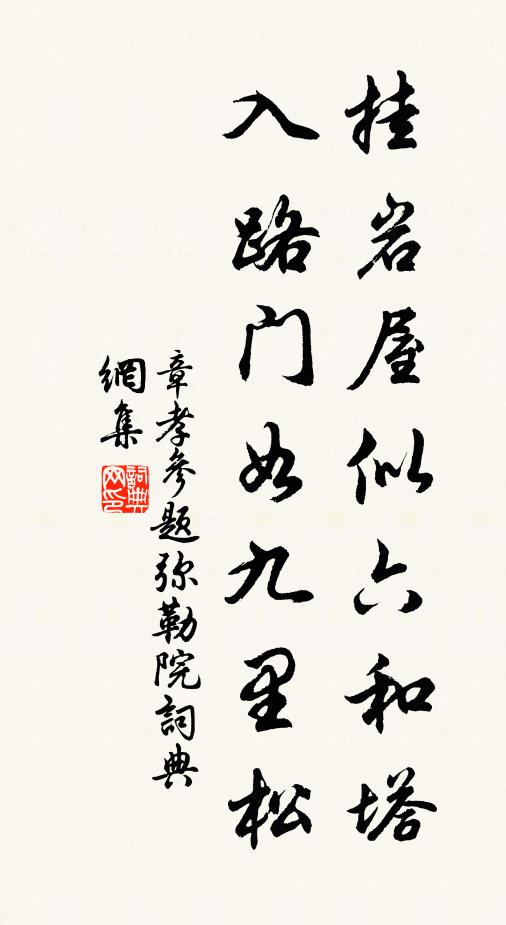 挂岩屋似六和塔
入路门如九里松
章孝参题弥勒院詞典
網集
詞典网印